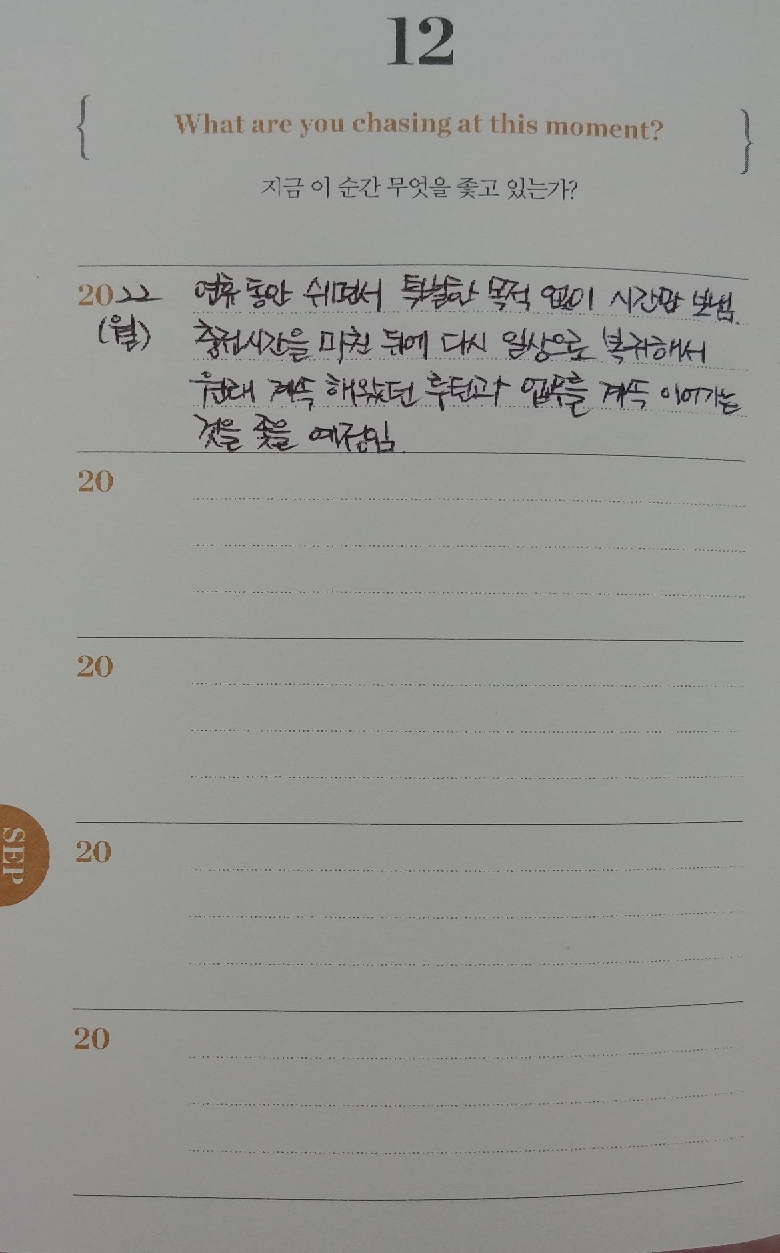 12
What are you chasing at this moment?
지금 이 순간 무엇을 좇고 있는가?
2022 연휴 동안 쉬면서 특별한 목적 없이 시간만 보냄.
(월) 충전시간을 마친 뒤에 다시 일상으로 복귀해서
원래 계속 해왔던 루틴과 업무를 계속 이어가는
것을 좇을 예정임.
20
20
20
20
SEP